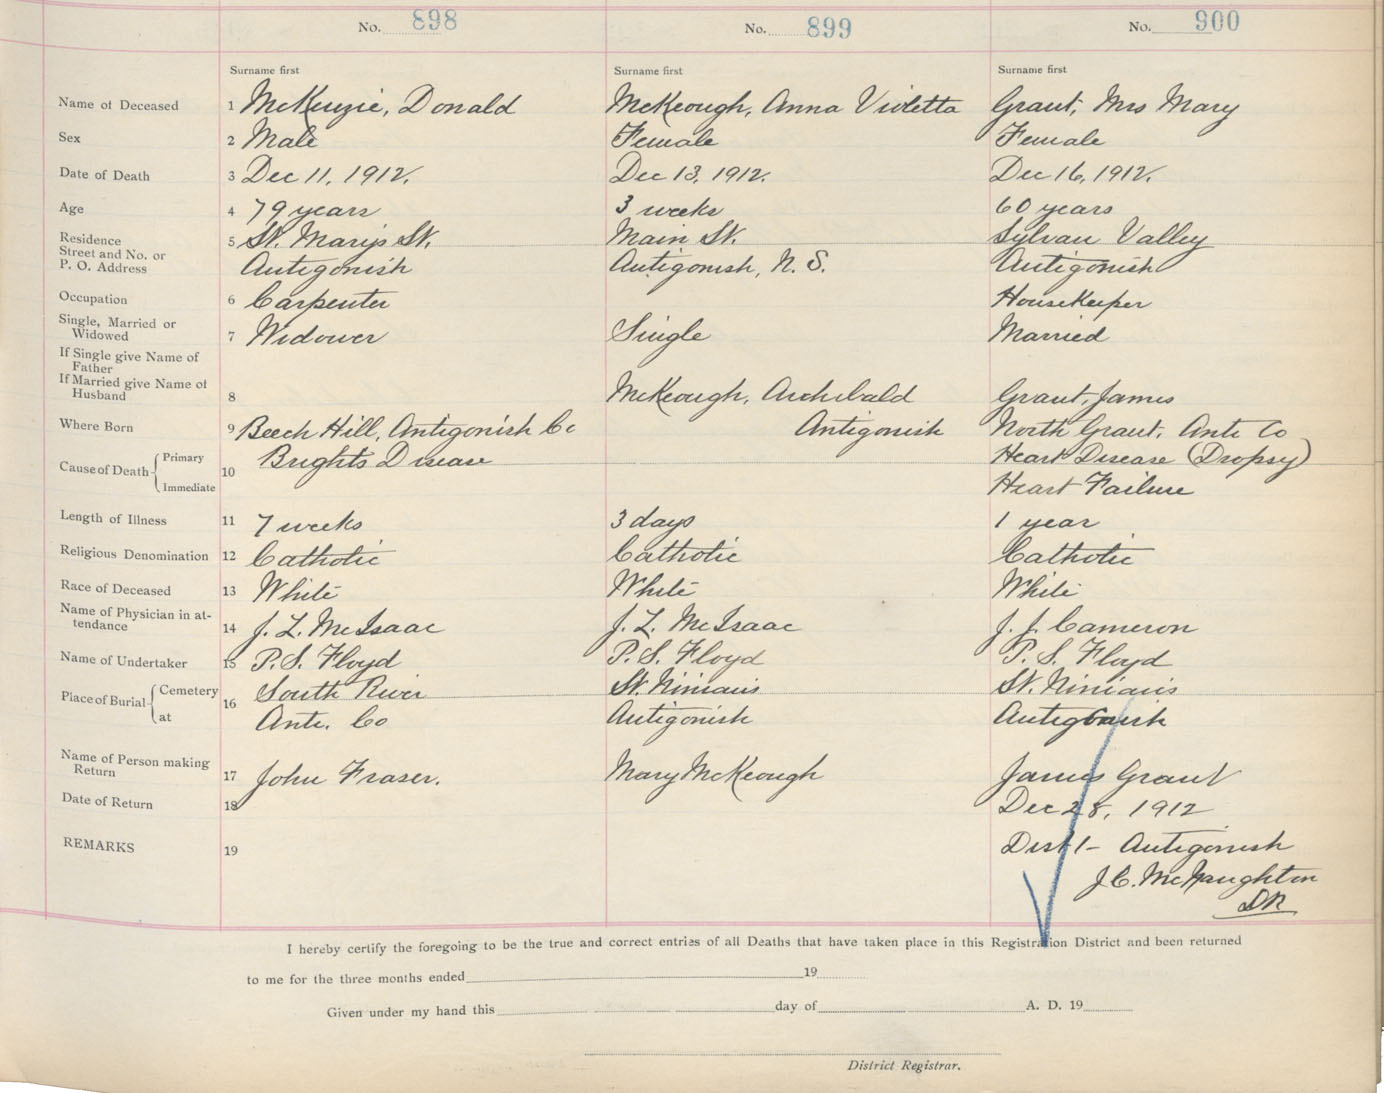 No. 898 No. 899 No. 900
Surname first Surname first Surname first
Name of Deceased 1 McKenzie, Donald McKeough, Anna Violetta Grant, Mrs Mary
Sex 2 Male Female Female
Date of Death 3 Dec 11, 1912. Dec 13, 1912. Dec 16, 1912.
Age 4 79 years 3 weeks 60 years
Residence 5 St. Mary's St. Main St. Sylvan Valley
Street and No. or
P. O. Address Antigonish Antigonish, N. S. Antigonish
Occupation 6 Carpenter Housekeeper
Single, Married or
Widowed 7 Widower Single Married
If Single give Name of
Father
If Married give Name of
Husband 8 McKeough, Archibald Grant, James
Where Born 9 Beech Hill, Antigonish Co Antigonish North Grant, Anti Co
Cause of Death Primary 10 Brights Disease Heart Disease (Dropsy)
Immediate Heart Failure
Length of Illness 11 7 weeks 3 days 1 year
Religious Denomination 12 Catholic Catholic Catholic
Race of Deceased 13 White White White
Name of Physician in at-
tendance 14 J. L. McIsaac J. L. McIsaac J. J. Cameron
Name of Undertaker 15 P. S. Floyd P. S. Floyd P. S. Floyd
Place of Burial Cemetery 16 South River St. Ninian's St. Ninian's
at Anti. Co Antigonish Antigonish
Name of Person making
Return 17 John Fraser. Mary McKeough James Grant
Date of Return 18 Dec 28, 1912
REMARKS 19 Dist 1 - Antigonish
J. C. McNaughton
DR
I hereby certify the foregoing to be the true and correct entries of all Deaths that have taken place in this Registration District and been returned
to me for the three months ended 19
Given under my hand this day of A. D. 19
District Registrar.